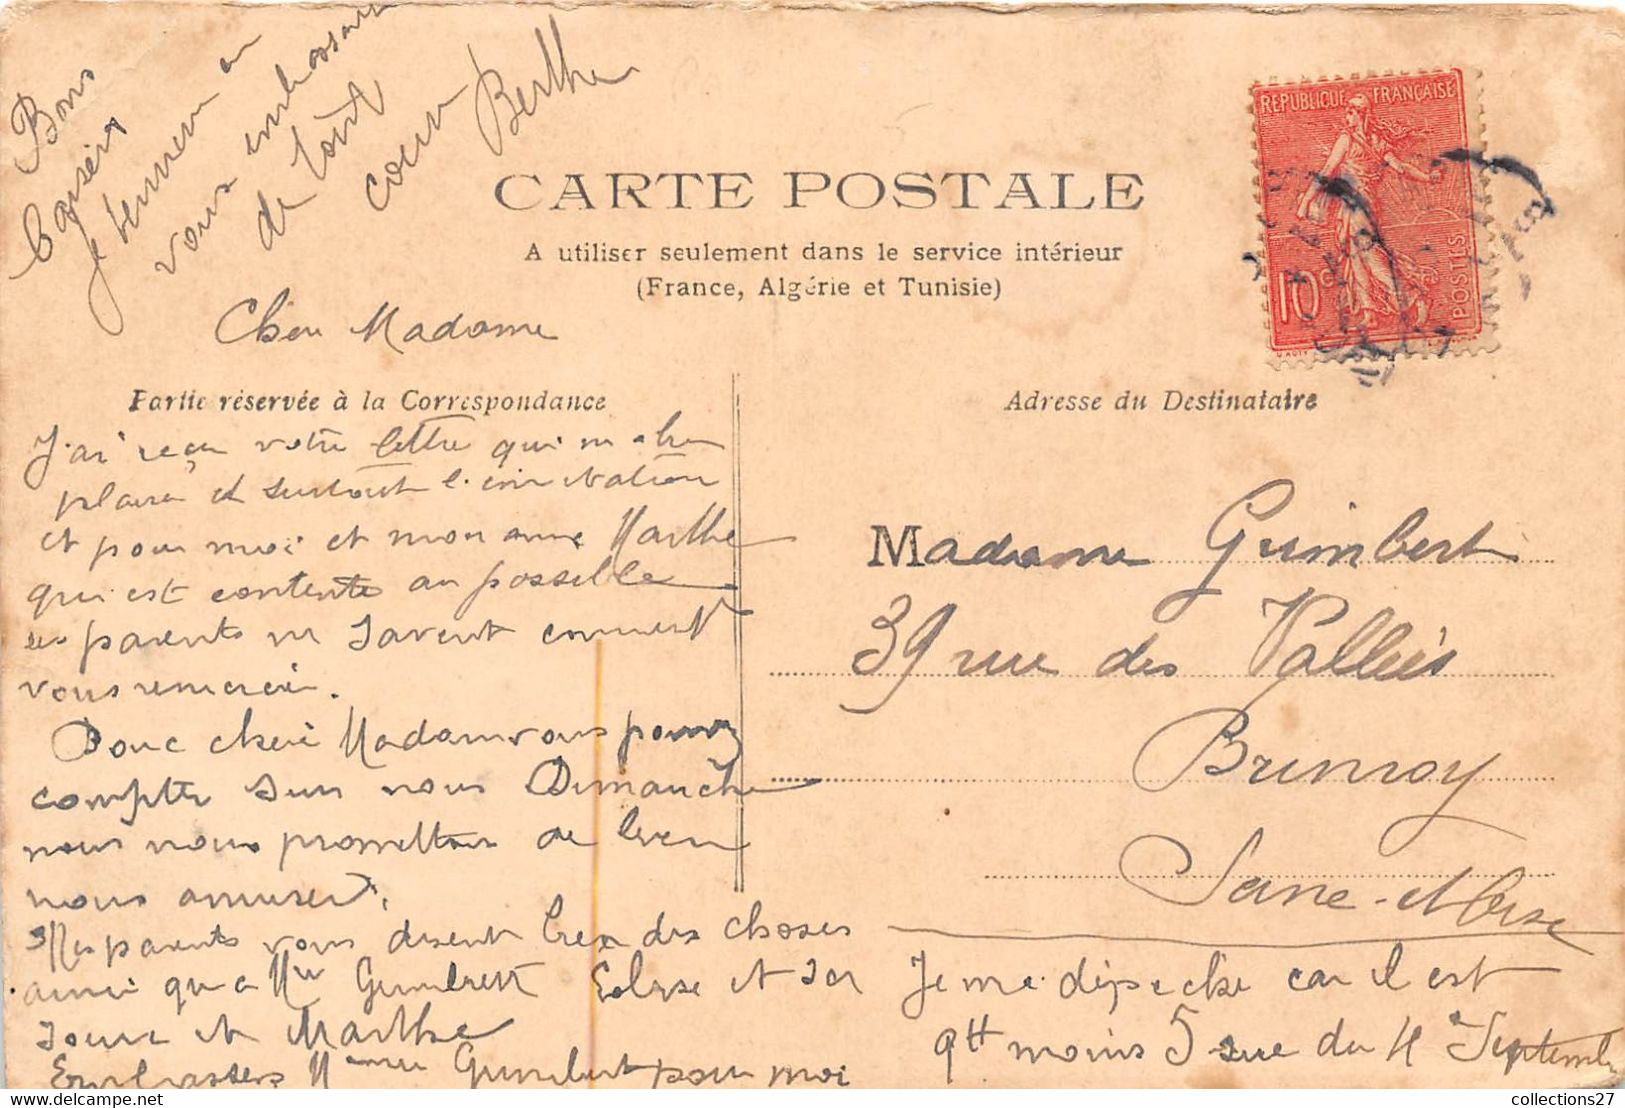 Bons
baisers
je termine en
vous embrassant
de tout
coeur Berthe
RÉPUBLIQUE FRANÇAISE
10c
POSTES
CARTE POSTALE
A utiliser seulement dans le service intérieur
(France, Algérie et Tunisie)
Cher Madame
Partie réservée à la Correspondance
Adresse du Destinataire
J'ai reçu votre lettre qui m'a bien
plaisir et surtout l'invitation
et pour moi et mon amie Marthe
qui est contente au possible
ses parents ne savent comment
vous remercier.
Donc chère Madame vous pouvez
compter sur nous Dimanche
nous nous promettons de bien
nous amuser.
Mes parents vous disent bien des choses
ainsi qu'a Mr Guimbert et sa
soeur et Marthe
Embrassers Guimbert pour moi
Madame Guimbert
39 rue des Vallées
Brunoy
Seine-et-Oise
Je me dépeche car il est
moins 5 rue du 4 Septembre
collections27